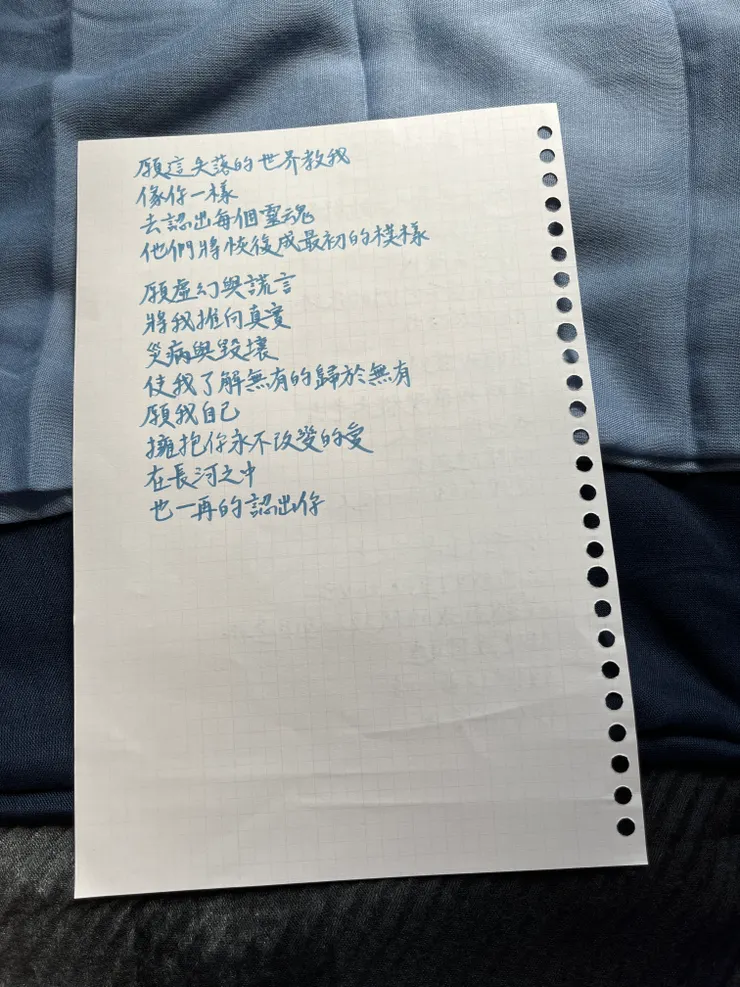 願這失落的世界教我
像你一樣
去認出每個靈魂
他們將恢復成最初的模樣
願虛幻與謊言
將我推向真實
災病與毀壞
使我了解無有的歸於無有
願我自己
擁抱你永不改變的愛
在長河之中
也一再的認出你